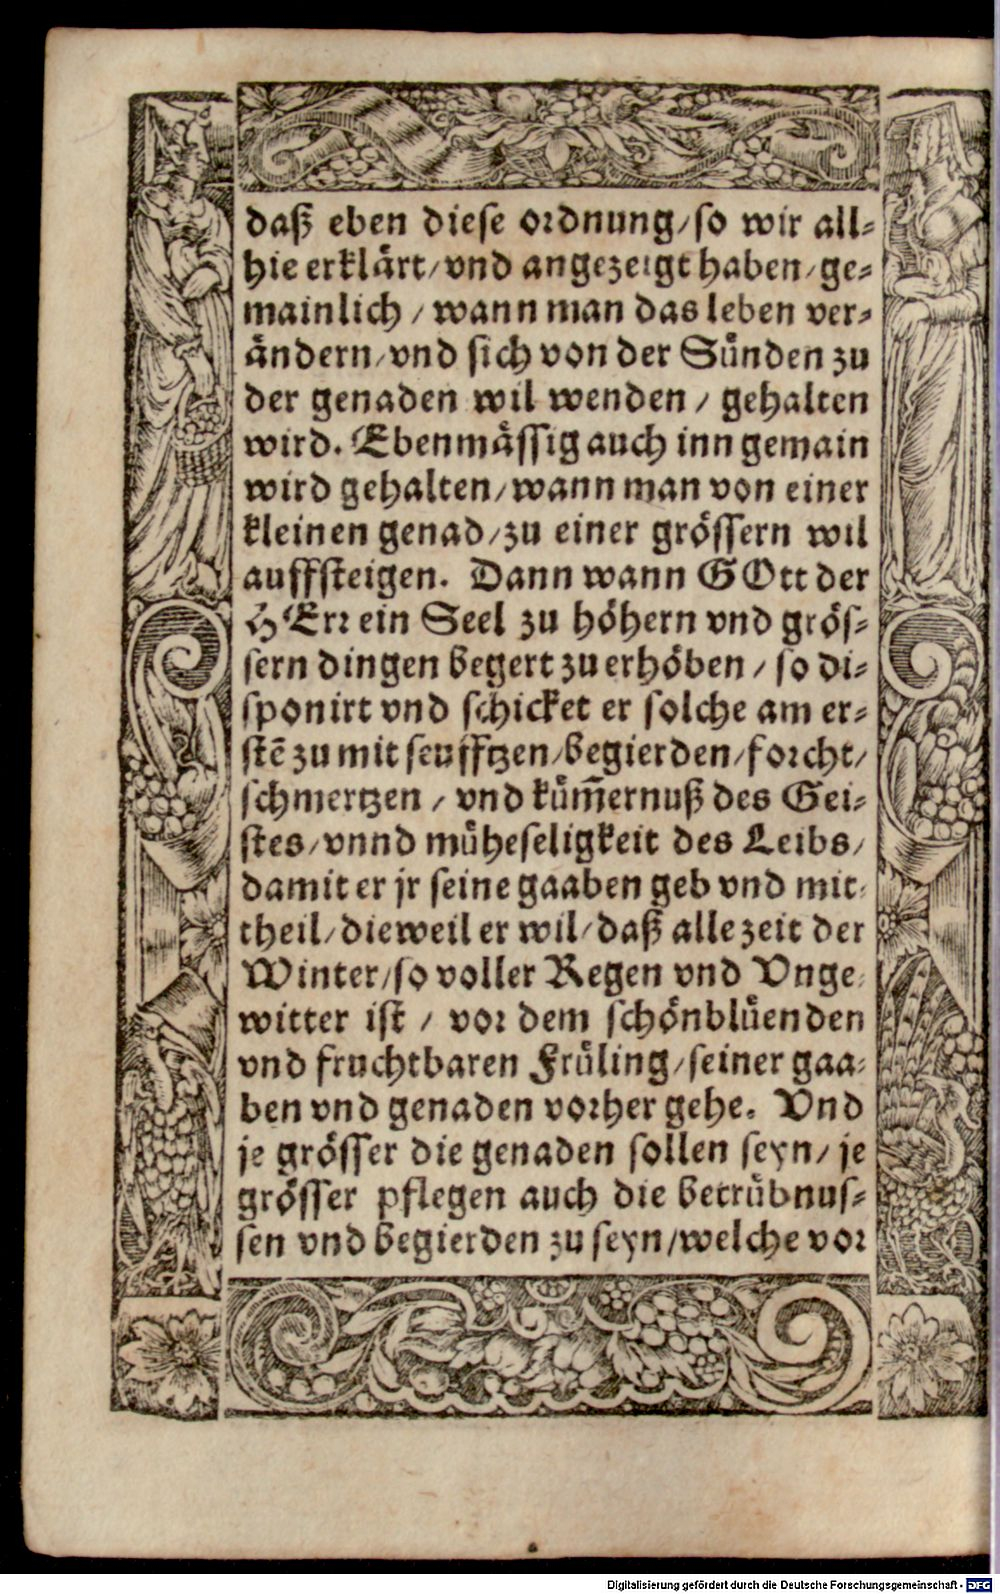 daß eben diese ordnung/so wir all⸗
hie erklärt/vnd angezeigt haben/ge⸗
mainlich / wann man das leben ver⸗
ändern/vnd sich von der Sünden zu
der genaden wil wenden / gehalten
wird. Ebenmässig auch inn gemain
wird gehalten/wann man von einer
kleinen genad/zu einer grössern wil
auffsteigen. Dann wann GOtt der
HErr ein Seel zu höhern vnd grös⸗
sern dingen begert zu erhöben / so di⸗
sponirt vnd schicket er solche am er⸗
stē zu mit seufftzen/begierden/forcht/
schmertzen / vnd küm̄ernuß des Gei⸗
stes/vnnd müheseligkeit des Leibs/
damit er jr seine gaaben geb vnd mit⸗
theil/dieweil er wil/daß allezeit der
Winter/so voller Regen vnd Vnge⸗
witter ist / vor dem schönblüenden
vnd fruchtbaren Früling/seiner gaa⸗
ben vnd genaden vorher gehe. Vnd
je grösser die genaden sollen seyn/ je
grösser pflegen auch die betrübnus⸗
sen vnd begierden zu seyn/welche vor
Digitalisierung gefördert durch die Deutsche Forschungsgemeinschaft - DFG